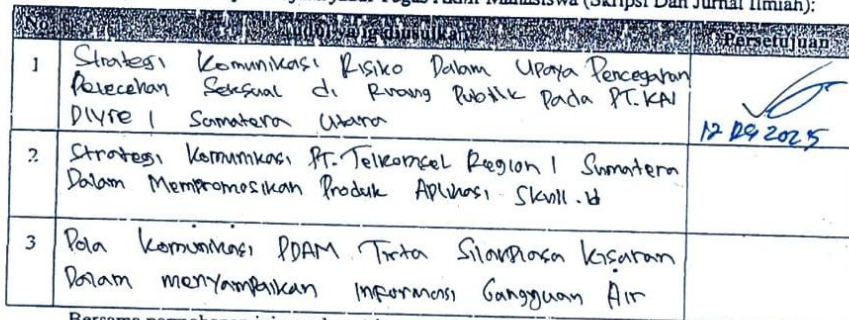 Tugas Akhir Mahasiswa (Skripsi Dan Jurnal Ilmiah):
No Judul yang diusulkan Persetujuan
1 Strategi Komunikasi Risiko Dalam Upaya Pencegahan
Pelecehan Seksual di Ruang Publik Pada PT. KAI
DIVRE 1 Sumatera Utara
12 2025
2. Strategi Komunikasi PT. Telkomsel Region 1 Sumatera
Dalam Mempromosikan Produk Aplikasi Skull.id
3 Pola Komunikasi PDAM Tirta Silaupiasa Kisaran
Dalam menyampaikan Informasi Gangguan Air